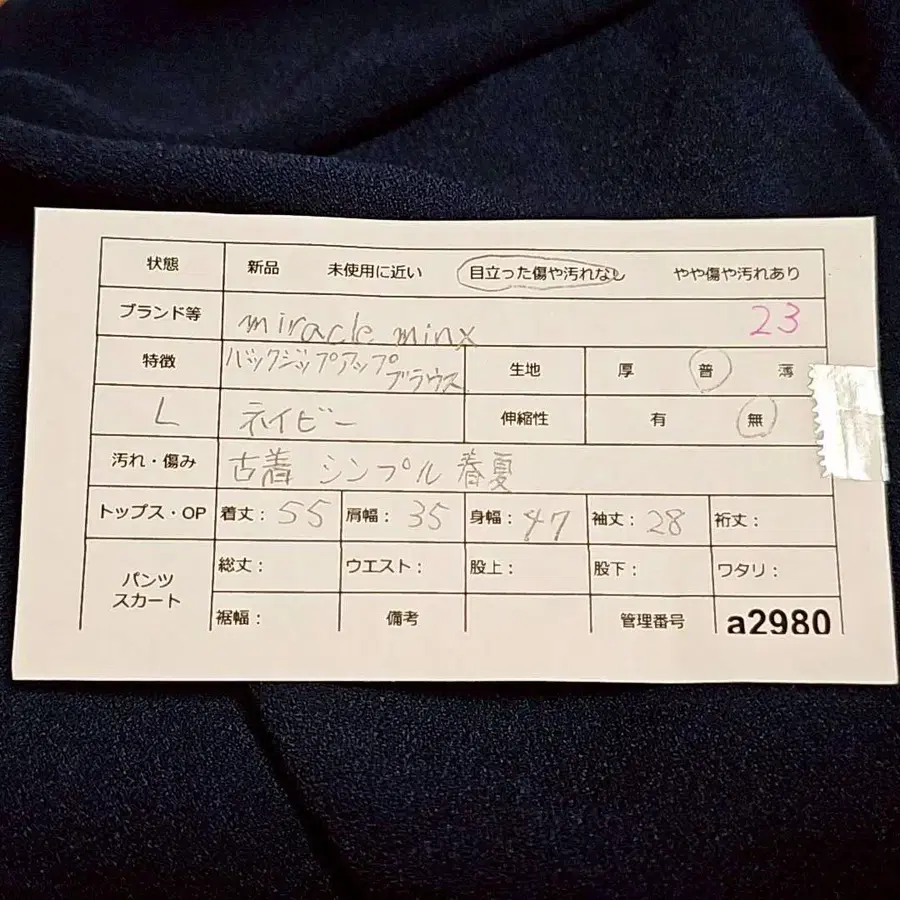 状態 新品 未使用に近い 目立った傷や汚れなし やや傷や汚れあり
ブランド等 miracle minx 23
特徴 バックジップアップブラウス 生地 厚 普 薄
L ネイビー 伸縮性 有 無
汚れ・傷み 古着 シンプル 春夏
トップス・OP 着丈： 55 肩幅： 35 身幅： 47 袖丈： 28 裄丈：
パンツ スカート 総丈： ウエスト： 股上： 股下： ワタリ：
裾幅： 備考 管理番号 a2980